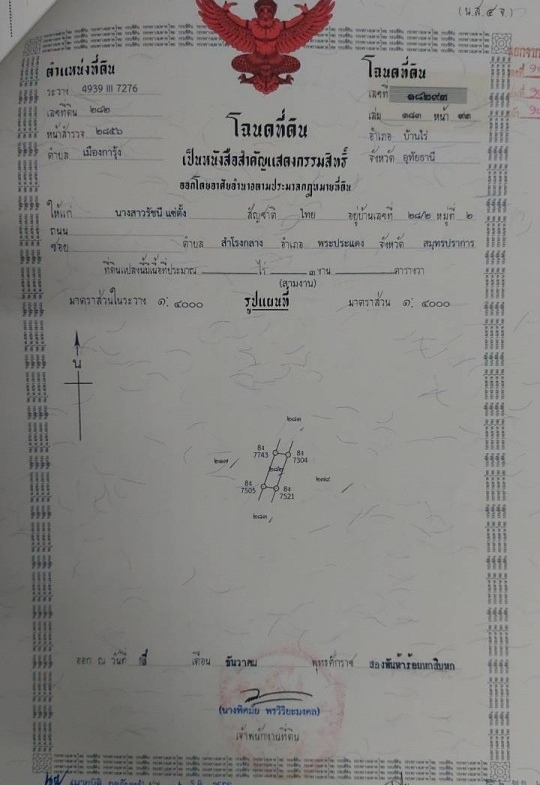 (น.ส.๔ จ.)
ตำแหน่งที่ดิน
ระวาง 4939 III 7276
เลขที่ดิน ๒๘๒
หน้าสำรวจ ๒๘๕๖
ตำบล เมืองการุ้ง
โฉนดที่ดิน
เลขที่ ๑๘๒๙๓
เล่ม ๑๘๓ หน้า ๙๓
อำเภอ บ้านไร่
จังหวัด อุทัยธานี
โฉนดที่ดิน
เป็นหนังสือสำคัญแสดงกรรมสิทธิ์
ออกโดยอาศัยอำนาจตามประมวลกฎหมายที่ดิน
ให้แก่ นางสาวรัชนี แซ่ตั้ง สัญชาติ ไทย อยู่บ้านเลขที่ ๒๘/๒ หมู่ที่ ๒
ถนน
ซอย ตำบล สำโรงกลาง อำเภอ พระประแดง จังหวัด สมุทรปราการ
ที่ดินแปลงนี้มีเนื้อที่ประมาณ ไร่ ๓ งาน ตารางวา
(สามงาน)
มาตราส่วนในระวาง ๑: ๔๐๐๐ รูปแผนที่ มาตราส่วน ๑: ๔๐๐๐
น
๒๘๓
8ง 7743
8ง 7304
๒๘๒
๒๗๔
8ง 7505
8ง 7521
ออก ณ วันที่ สี่ เดือน ธันวาคม พุทธศักราช สองพันห้าร้อยหกสิบหก
(นางพิศมัย พรวิริยะมงคล)
เจ้าพนักงานที่ดิน